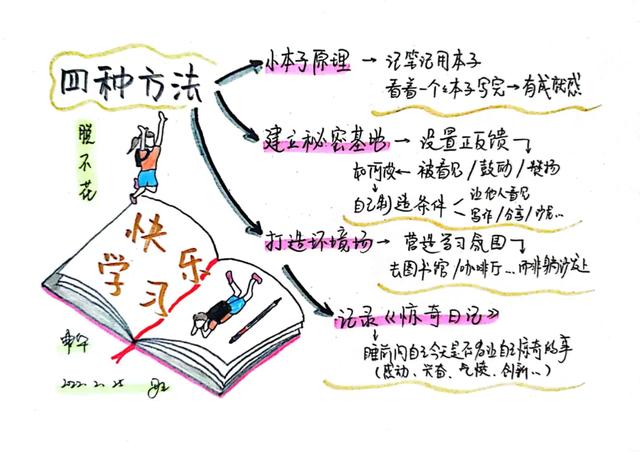 四种方法
小本子原理 → 记笔记用本子
看着一个个本子写完 → 有成就感
建立秘密基地 → 设置正反馈
如何做 ← 被看见/鼓励/赞扬
自己制造条件
让他人看见
写作/分享/沙龙...
打造环境场 → 营造学习氛围
去图书馆/咖啡厅...而非躺沙发上
记录《惊奇日记》
睡前问自己今天是否有让自己惊奇的事
(感动、兴奋、气愤、创新...)
脱不花
快乐
学习
2022.2.25